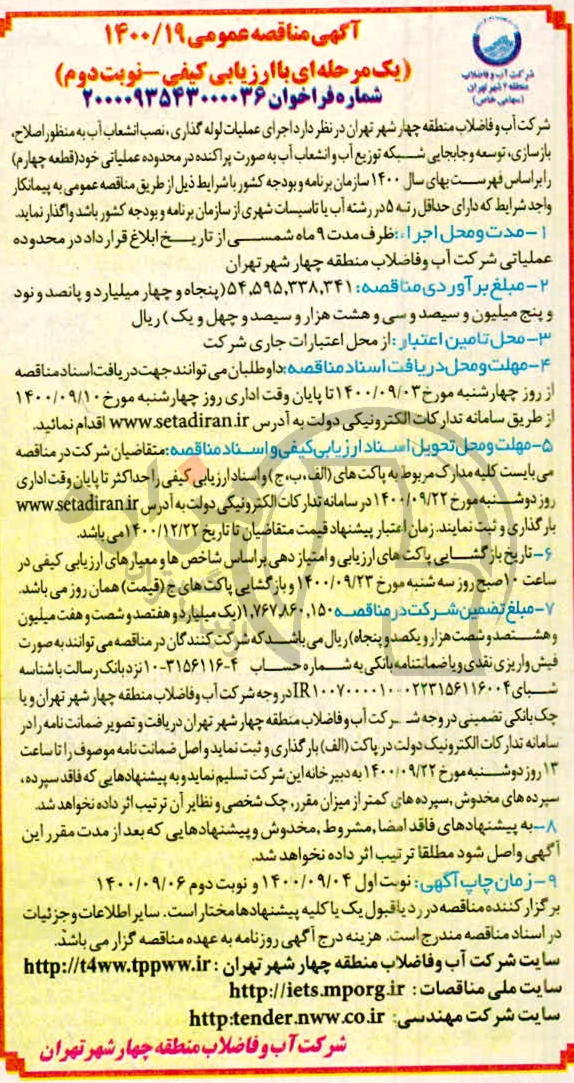 آگهی مناقصه عمومی ۱۴۰۰/۱۹
(یک مرحله‌ای با ارزیابی کیفی – نوبت دوم)
شماره فراخوان ۲۰۰۰۰۹۳۵۴۳۰۰۰۰۳۶
شرکت آب و فاضلاب
منطقه ۴ شهر تهران
(سهامی خاص)
شرکت آب و فاضلاب منطقه چهار شهر تهران در نظر دارد اجرای عملیات لوله گذاری، نصب انشعاب آب به منظور اصلاح،
بازسازی، توسعه و جابجایی شبکه توزیع آب و انشعاب آب به صورت پراکنده در محدوده عملیاتی خود (قطعه چهارم)
را بر اساس فهرست بهای سال ۱۴۰۰ سازمان برنامه و بودجه کشور با شرایط ذیل از طریق مناقصه عمومی به پیمانکار
واجد شرایط که دارای حداقل رتبه ۵ در رشته آب یا تاسیسات شهری از سازمان برنامه و بودجه کشور باشد واگذار نماید.
۱- مدت و محل اجرا: ظرف مدت ۹ ماه شمسی از تاریخ ابلاغ قرارداد در محدوده
عملیاتی شرکت آب و فاضلاب منطقه چهار شهر تهران
۲- مبلغ برآوردی مناقصه: ۵۴,۵۹۵,۳۳۸,۳۴۱ (پنجاه و چهار میلیارد و پانصد و نود
و پنج میلیون و سیصد و سی و هشت هزار و سیصد و چهل و یک) ریال
۳- محل تامین اعتبار: از محل اعتبارات جاری شرکت
۴- مهلت و محل دریافت اسناد مناقصه: داوطلبان می توانند جهت دریافت اسناد مناقصه
از روز چهارشنبه مورخ ۱۴۰۰/۰۹/۰۳ تا پایان وقت اداری روز چهارشنبه مورخ ۱۴۰۰/۰۹/۱۰
از طریق سامانه تدارکات الکترونیکی دولت به آدرس www.setadiran.ir اقدام نمائید.
۵- مهلت و محل تحویل اسناد ارزیابی کیفی و اسناد مناقصه: متقاضیان شرکت در مناقصه
می بایست کلیه مدارک مربوط به پاکت های (الف، ب، ج) و اسناد ارزیابی کیفی را حداکثر تا پایان وقت اداری
روز دوشنبه مورخ ۱۴۰۰/۰۹/۲۲ در سامانه تدارکات الکترونیکی دولت به آدرس www.setadiran.ir
بارگذاری و ثبت نمایند. زمان اعتبار پیشنهاد قیمت متقاضیان تا تاریخ ۱۴۰۰/۱۲/۲۲ می باشد.
۶- تاریخ بازگشایی پاکت های ارزیابی و امتیازدهی بر اساس شاخص ها و معیارهای ارزیابی کیفی در
ساعت ۱۰ صبح روز سه شنبه مورخ ۱۴۰۰/۰۹/۲۳ و بازگشایی پاکت های ج (قیمت) همان روز می باشد.
۷- مبلغ تضمین شرکت در مناقصه ۱,۷۶۷,۸۶۰,۱۵۰ (یک میلیارد و هفتصد و شصت و هفت میلیون
و هشتصد و شصت هزار و یکصد و پنجاه) ریال می باشد که شرکت کنندگان در مناقصه می توانند به صورت
فیش واریزی نقدی و یا ضمانتنامه بانکی به شماره حساب ۴-۳۱۵۶۱۱۶-۱۰ نزد بانک رسالت با شناسه
شبای در وجه شرکت آب و فاضلاب منطقه چهار شهر تهران و یا
چک بانکی تضمینی در وجه شرکت آب و فاضلاب منطقه چهار شهر تهران دریافت و تصویر ضمانت نامه را در
سامانه تدارکات الکترونیک دولت در پاکت (الف) بارگذاری و ثبت نماید و اصل ضمانت نامه موصوف را تا ساعت
۱۳ روز دوشنبه مورخ ۱۴۰۰/۰۹/۲۲ به دبیرخانه این شرکت تسلیم نماید و به پیشنهادهایی که فاقد سپرده،
سپرده های مخدوش, سپرده های کمتر از میزان مقرر, چک شخصی و نظایر آن ترتیب اثر داده نخواهد شد.
۸- به پیشنهادهای فاقد امضا, مشروط, مخدوش و پیشنهادهایی که بعد از مدت مقرر این
آگهی واصل شود مطلقا ترتیب اثر داده نخواهد شد.
۹- زمان چاپ آگهی: نوبت اول ۱۴۰۰/۰۹/۰۴ و نوبت دوم ۱۴۰۰/۰۹/۰۶
برگزار کننده مناقصه در رد یا قبول یک یا کلیه پیشنهادها مختار است. سایر اطلاعات و جزئیات
در اسناد مناقصه مندرج است. هزینه درج آگهی روزنامه به عهده مناقصه گزار می باشد.
سایت شرکت آب و فاضلاب منطقه چهار شهر تهران : http://t4ww.tppww.ir
سایت ملی مناقصات : http://iets.mporg.ir
سایت شرکت مهندسی: http:tender.nww.co.ir
شرکت آب و فاضلاب منطقه چهار شهر تهران